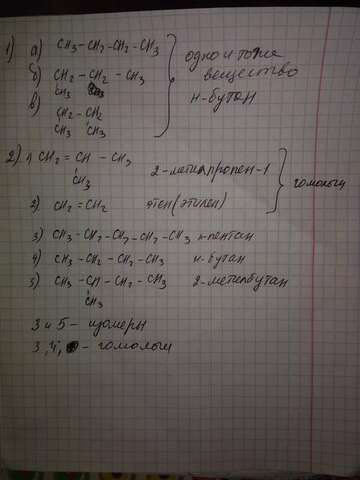 1) а) CH3 – CH2 – CH2 – CH3
б) CH2 – CH2 – CH3
CH3
в) CH2 – CH2
CH3 CH3
одно и то же
вещество
н-бутан
2) 1) CH2 = CH – CH3
CH3
2-метилпропен-1
2) CH2 = CH2 этен (этилен)
гомологи
3) CH3 – CH2 – CH2 – CH2 – CH3 н-пентан
4) CH3 – CH2 – CH2 – CH3 н-бутан
5) CH3 – CH – CH2 – CH3 2-метилбутан
CH3
3 и 5 – изомеры
3, 4, – гомологи